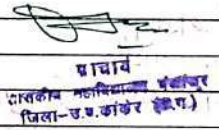 प्राचार्य
शासकीय महाविद्यालय पंखांजूर
जिला-उ.ब.कांकेर (छ.ग.)